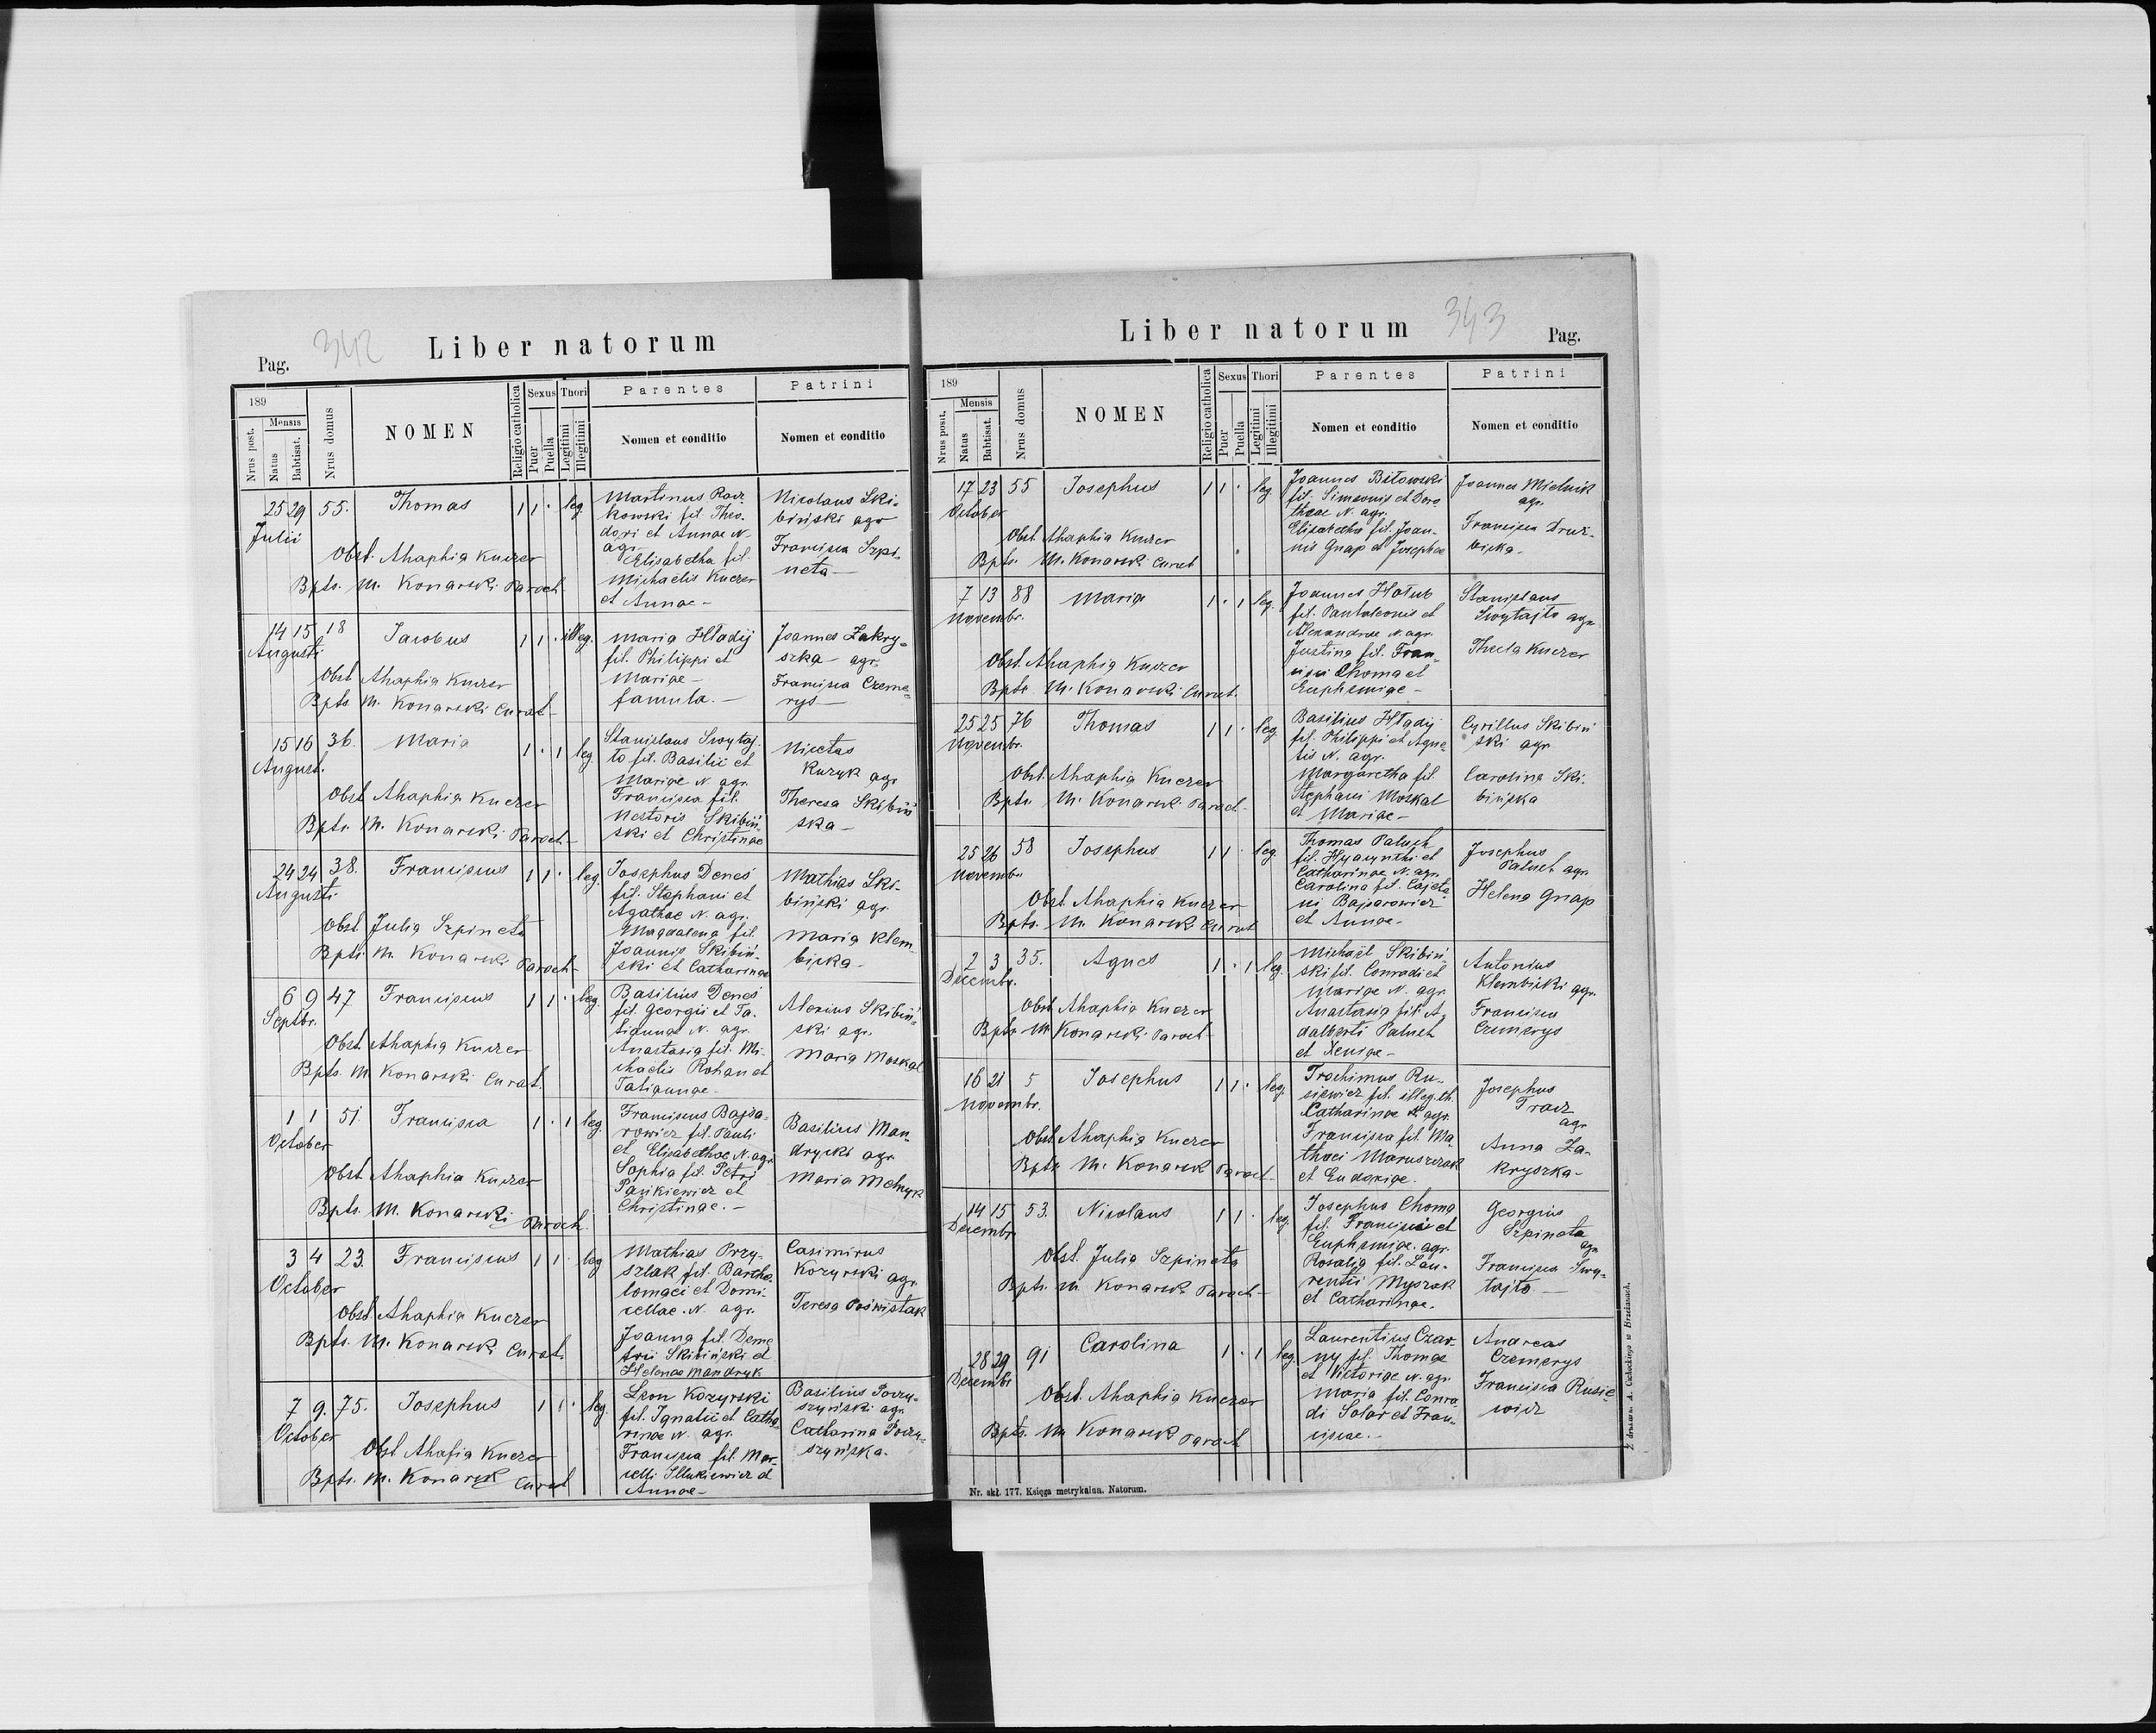 Pag. 342 Liber natorum
189
Nrus post.
Mensis
Natus
Babtisat.
Nrus domus
NOMEN
Religio catholica
Sexus
Puer
Puella
Thori
Legitimi
Illegitimi
Parentes
Nomen et conditio
Patrini
Nomen et conditio
25 29 55. Thomas 1 1 · leg.
Julii
Obst. Ahaphia Kuczer
Bpts. M. Konarski Paroch
Martinus
kowski fil. Theo-
dori et Annae N.
agr.
Elisabetha fil.
Michaelis Kuczer
et Annae -
Nicolaus Ski-
biński agr
Francisca Szpi-
neta -
14 15 18 Jacobus 1 1 · illeg.
Augusti
Obst Ahaphia Kuczer
Bpts M. Konarski Curat
Maria Hładij
fil. Philippi et
Mariae -
famula. -
Joannes Zakry-
szka - agr.
Francisca Czeme-
rys -
15 16 36. Maria 1 · 1 leg
August.
Obst Ahaphia Kuczer
Bpts. M. Konarski Paroch -
Stanislaus Swytaj-
to fil. Basilii et
Mariae N. agr.
Francisca fil.
Nestoris Skibiń-
ski et Christinae
Nicetas
Kuzyk agr
Theresa Skibiń
ska -
24 24 38. Franciscus 1 1 · leg.
Augusti
Obst Julia Szpineta
Bpts. M. Konarski Paroch -
Josephus Deneś
fil. Stephani et
Agathae N. agr.
Magdalena fil.
Joannis Skibiń-
ski et Catharinae
Mathias Ski-
biński agr
Maria Klem-
bicka -
6 9 47 Franciscus 1 1 · leg.
Septbr.
Obst. Ahaphia Kuczer
Bpts. M Konarski Curat.
Basilius Deneś
fil. Georgii et Ta-
tiannae N. agr.
Anastasia fil. Mi-
chaelis Rohan et
Tatiannae
Alexius Skibiń-
ski agr.
Maria Moskal
1 1 51. Francisca 1 · 1 leg.
October
Obst Ahaphia Kuczer
Bpts. M. Konarski Paroch.
Franciscus Bajsa-
rowicz fil. Pauli
et Elisabethae N. agr
Sophia fil. Petri
Pańkiewicz et
Christinae. -
Basilius Man-
drycki agr
Maria Melnyk
3 4 23. Franciscus 1 1 · leg
October
Obst. Ahaphia Kuczer
Bpts. M. Konarski Curat.
Mathias Przy-
szlak fil. Bartho-
lomaei et Domi-
cellae. N. agr.
Joanna fil. Deme-
trii Skibiński et
Helenae Mandryk
Casimirus
Kozyrski agr.
Teresa Poświstak
7 9. 75. Josephus 1 1 · leg.
October
Obst Ahafia Kuczer
Bpts. M. Konarsk Curat
Leon Kozyrski
fil. Ignatii et Catha-
rinae N. agr.
Francisca fil. Mar-
celli Illukiewicz et
Annae -
Basilius
szyński agr.
Catharina
szyńska.
Liber natorum 343 Pag.
189
Nrus post.
Mensis
Natus
Babtisat.
Nrus domus
NOMEN
Religio catholica
Sexus
Puer
Puella
Thori
Legitimi
Illegitimi
Parentes
Nomen et conditio
Patrini
Nomen et conditio
17 23 55 Josephus 1 1 · leg
October
Obst Ahaphia Kuczer
Bpts. M. Konarsk Curat
Joannes Biłowski
fil. Simeonis et Doro-
theae N. agr.
Elisabetha fil. Joan-
nis Gnap et Josephae
Joannes Mielnik
agr.
Francisca Druż-
bicka -
7 13 88 Maria 1 · 1 leg.
Novembr.
Obst. Ahaphia Kuczer
Bpts M. Konarski Curat.
Joannes Hołub
fil. Pantaleonis et
Alexandrae N. agr.
Justina fil. Fran-
cisci Choma et
Euphemiae -
Stanislaus
Swytajto agr.
Thecla Kuczer
25 25 76 Thomas 1 1 · leg
Novembr.
Obst. Ahaphia Kuczer
Bpts. M. Konarski Paroch -
Basilius Hładij
fil. Philippi et Agne-
tis N. agr.
Margaretha fil.
Stephani Moskal
et Mariae -
Cyrillus Skibiń
ski agr
Carolina Ski-
bińska
25 26 58 Josephus 1 1 · leg.
Novembr
Obst Ahaphia Kuczer
Bpts. M. Konarsk Curat
Thomas Paluch
fil. Hyacynthi et
Catharinae N. agr.
Carolina fil. Cajeta-
ni Bajsarowicz
et Annae -
Josephus
Paluch agr.
Helena Gnap
2 3 35. Agnes 1 · 1 leg.
Decembr.
Obst Ahaphia Kuczer
Bpts M Konarski Paroch -
Michaël Skibiń-
ski fil. Conradi et
Mariae N. agr.
Anastasia fil. A-
dalberti Paluch
et Xeniae -
Antonius
Klembicki agr.
Francisca
Czemerys
16 21 5 Josephus 1 1 · leg.
Novembr.
Obst. Ahaphia Kuczer
Bpts M. Konarsk Paroch -
Trochimus Ru-
siewicz fil. illeg. th.
Catharinae N. agr.
Francisca fil. Ma-
thaei Maruszczak
et Eudoxiae.
Josephus
Tracz
agr
Anna Za-
kryszka -
14 15 53. Nicolaus 1 1 · leg.
Decembr
Obst. Julia Szpineta
Bpts. M Konarsk Paroch -
Josephus Choma
fil. Francisci et
Euphemiae. agr.
Rosalia fil. Lau-
rentii Myszak
et Catharinae.
Georgius
Szpineta
agr
Francisca Swy-
tajto -
28 29 91 Carolina 1 · 1 leg.
Decembr
Obst. Ahaphia Kuczer
Bpts. M Konarsk Paroch
Laurentius Czar-
ny fil. Thomae
et Victoriae N. agr.
Maria fil. Conra-
di Solar et Fran-
ciscae. -
Andreas
Czemerys
Francisca Rusie-
wicz
Nr. skł. 177. Księga metrykalna. Natorum.
Z drukarn. A. Cichockiego w Brzeżanach.